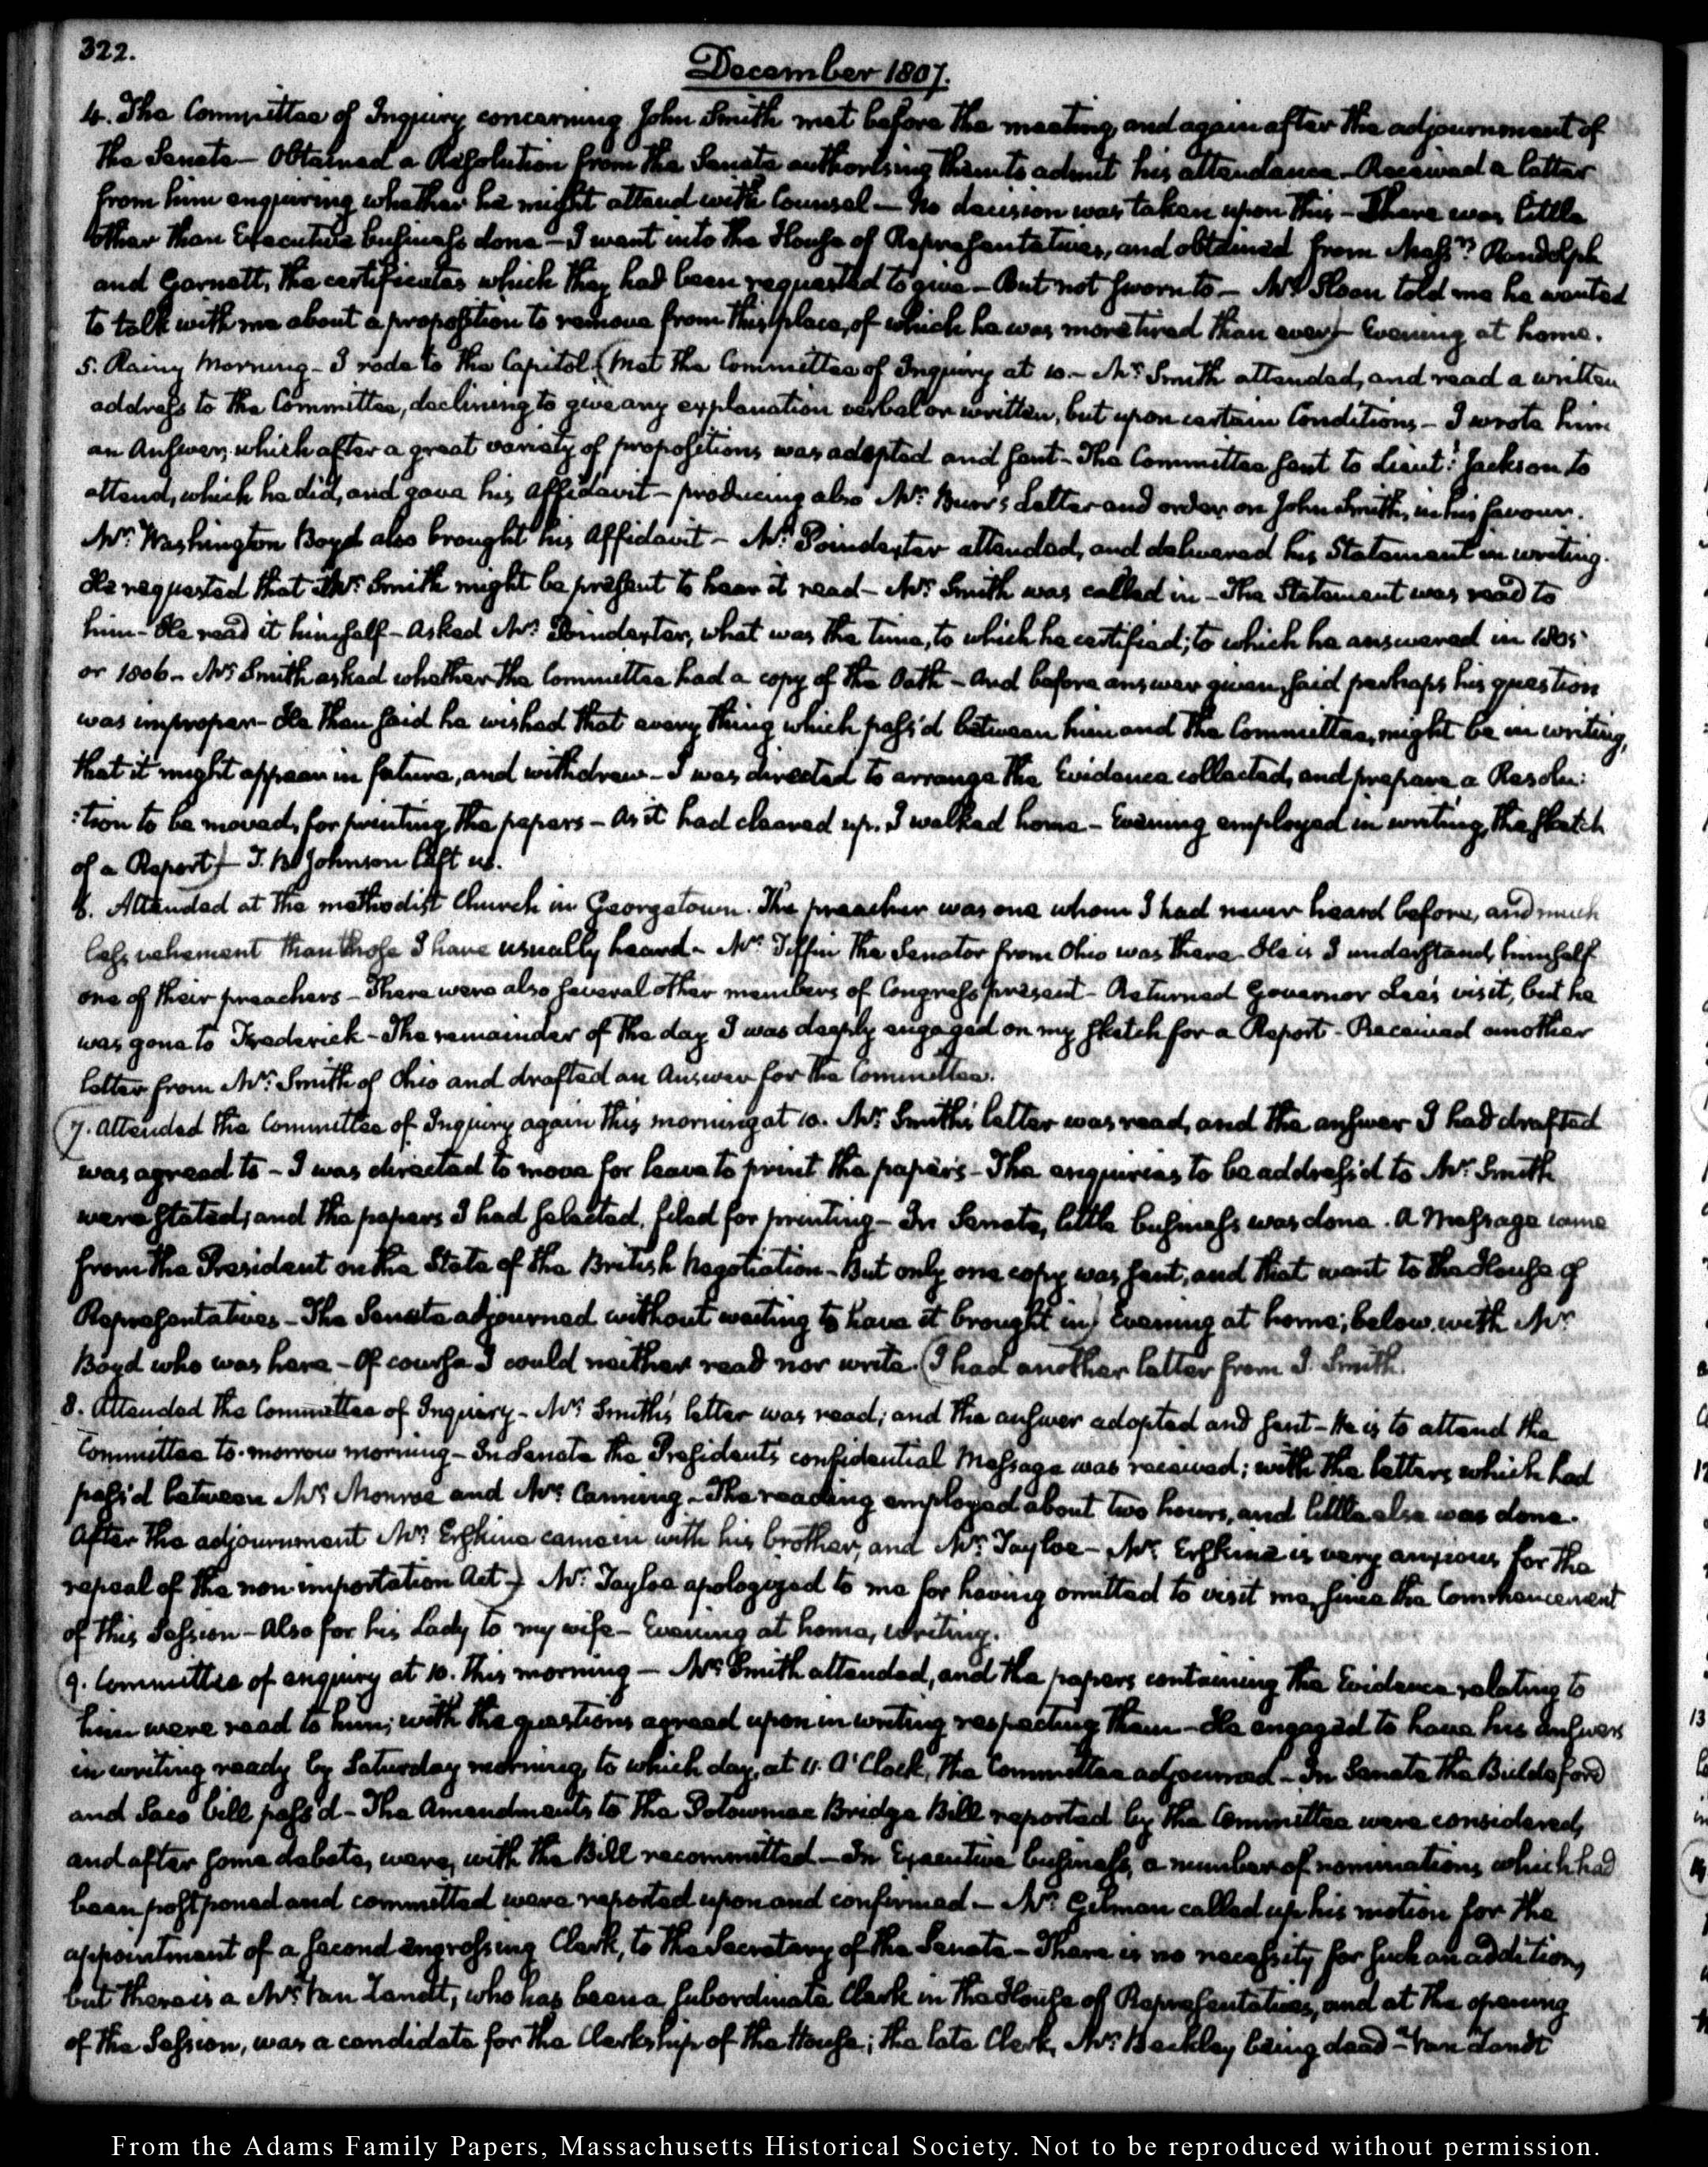 322.
December 1807.
4. The Committee of Inquiry concerning John Smith met before the meeting, and again after the adjournment of
the Senate — Obtained a Resolution from the Senate authorising them to admit his attendance — Received a letter
from him enquiring whether he might attend with Counsel — No decision was taken upon this — There was little
other than Executive business done — I went into the House of Representatives, and obtained from Messrs. Randolph
and Garnett, the certificates which they had been requested to give — But not sworn to — Mr. Sloan told me he wanted
to talk with me about a proposition to remove from this place, of which he was more tired than ever) — Evening at home.
5. Rainy Morning — I rode to the Capitol (Met the Committee of Inquiry at 10 — Mr. Smith attended, and read a written
address to the Committee, declining to give any explanation verbal or written, but upon certain Conditions — I wrote him
an Answer, which after a great variety of propositions was adopted and sent — The Committee sent to Lieut: Jackson to
attend, which he did, and gave his Affidavit — producing also Mr. Burr's Letter and order on John Smith, in his favour.
Mr. Washington Boyd also brought his Affidavit — Mr. Poindexter attended, and delivered his Statement in writing.
He requested that Mr. Smith might be present to hear it read — Mr. Smith was called in — The Statement was read to
him — He read it himself — Asked Mr. Poindexter, what was the time, to which he certified; to which he answered in 1805
or 1806 — Mr. Smith asked whether the Committee had a copy of the Oath — And before answer given, said perhaps his question
was improper — He then said he wished that every thing which pass'd between him and the Committee, might be in writing,
that it might appear in future, and withdrew — I was directed to arrange the Evidence collected, and prepare a Resolu:
:tion to be moved, for printing the papers — As it had cleared up, I walked home — Evening employed in writing, the sketch
of a Report) — T. B. Johnson left us.
6. Attended at the methodist Church in Georgetown. The preacher was one whom I had never heard before, and much
less vehement than those I have usually heard — Mr. Tiffin the Senator from Ohio was there — He is I understand, himself
one of their preachers — There were also several other members of Congress present — Returned Governor Lee's visit, but he
was gone to Frederick — The remainder of the day I was deeply engaged on my sketch for a Report — Received another
letter from Mr. Smith of Ohio and drafted an Answer for the Committee.
(7. Attended the Committee of Inquiry again this morning at 10. Mr. Smith's letter was read, and the answer I had drafted
was agreed to — I was directed to move for leave to print the papers — The enquiries to be address'd to Mr. Smith
were stated; and the papers I had selected, filed for printing — In Senate, little business was done. A Message came
from the President on the State of the British Negotiation — But only one copy was sent, and that went to the House of
Representatives — The Senate adjourned without waiting to have it brought in) Evening at home; below, with Mr.
Boyd who was here — Of course I could neither read nor write. (I had another letter from J. Smith.
8. Attended the Committee of Inquiry — Mr. Smith's letter was read; and the answer adopted and sent — He is to attend the
Committee to-morrow morning — In Senate the President's confidential Message was received; with the letters which had
pass'd between Mr. Monroe and Mr. Canning — The reading employed about two hours, and little else was done.
After the adjournment Mr. Erskine came in with his brother, and Mr. Tayloe — Mr. Erskine is very anxious for the
repeal of the non-importation Act —) Mr. Tayloe apologized to me for having omitted to visit me, since the Commencement
of this Session — Also for his Lady to my wife — Evening at home, writing.
(9. Committee of enquiry at 10. this morning — Mr. Smith attended, and the papers containing the Evidence relating to
him were read to him; with the questions agreed upon in writing respecting them — He engaged to have his answers
in writing ready by Saturday morning, to which day, at 11. O'Clock, the Committee adjourned — In Senate the Biddeford
and Saco bill pass'd — The Amendments to the Potowmac Bridge Bill reported by the Committee were considered,
and after some debate, were, with the Bill recommitted — In Executive business, a number of nominations which had
been postponed and committed were reported upon and confirmed — Mr. Gilman called up his motion for the
appointment of a second engrossing Clerk, to the Secretary of the Senate — There is no necessity for such an addition,
but there is a Mr. Van Zandt, who has been a subordinate Clerk in the House of Representatives, and at the opening
of the Session, was a candidate for the Clerkship of the House; the late Clerk, Mr. Beckley being dead — Van Zandt
From the Adams Family Papers, Massachusetts Historical Society. Not to be reproduced without permission.